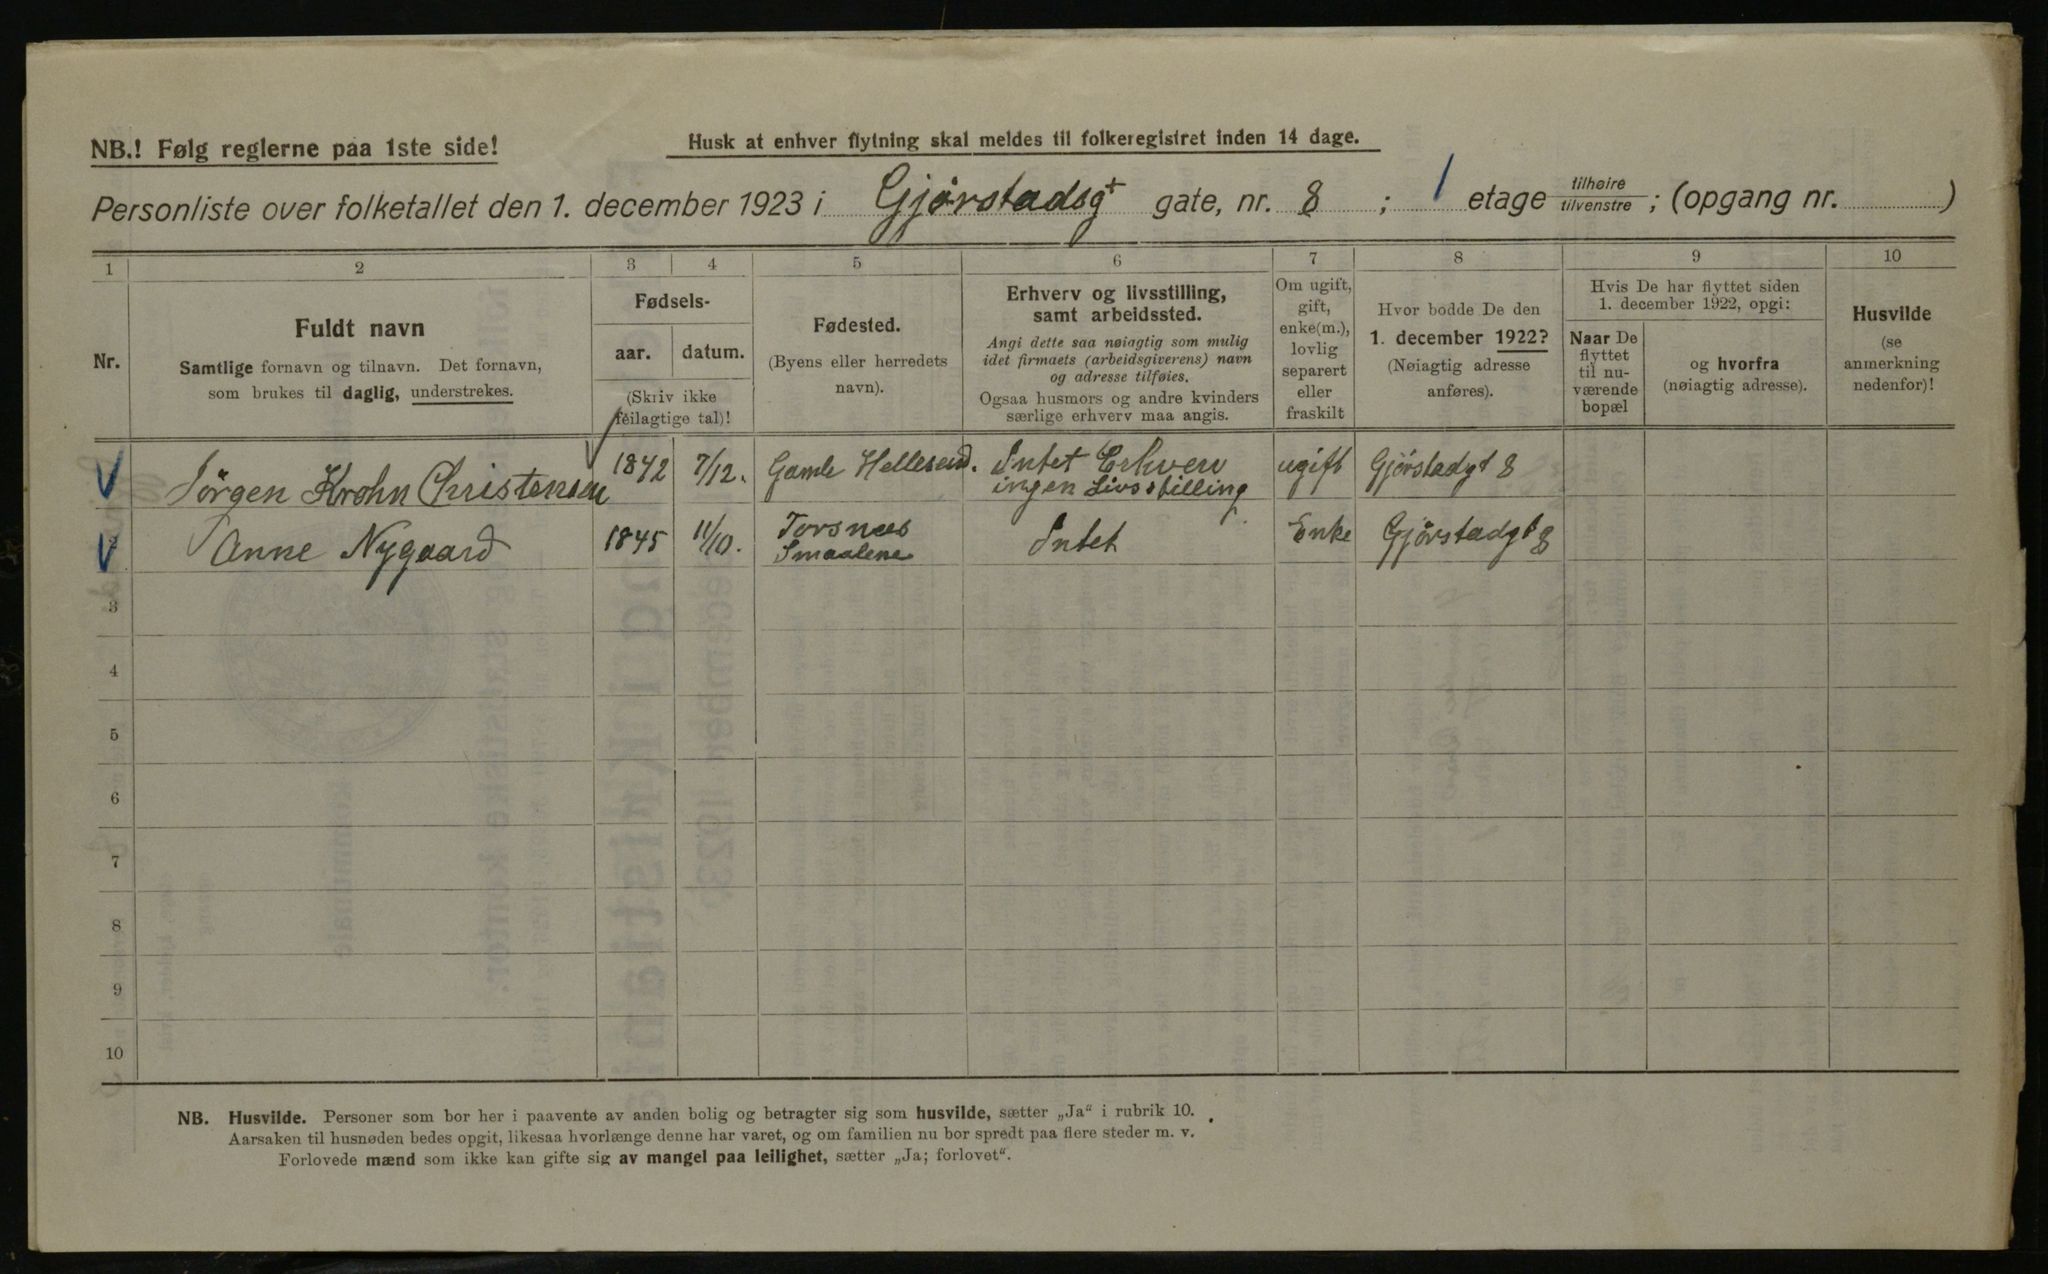 NB.! Følg reglerne paa 1ste side!
Husk at enhver flytning skal meldes til folkeregistret inden 14 dage.
Personliste over folketallet den 1. december 1923 i Gjørstadsgt gate, nr. 8 ; 1 etage tilhøire tilvenstre ; (opgang nr. )
1 2 3 4 5 6 7 8 9 10
Nr.
Fuldt navn
Samtlige fornavn og tilnavn. Det fornavn,
som brukes til daglig, understrekes.
Fødsels-
aar. datum.
(Skriv ikke
feilagtige tal)!
Fødested.
(Byens eller herredets
navn).
Erhverv og livsstilling,
samt arbeidssted.
Angi dette saa nøiagtig som mulig
idet firmaets (arbeidsgiverens) navn
og adresse tilføies.
Ogsaa husmors og andre kvinders
særlige erhverv maa angis.
Om ugift,
gift,
enke(m.),
lovlig
separert
eller
fraskilt
Hvor bodde De den
1. december 1922?
(Nøiagtig adresse
anføres).
Hvis De har flyttet siden
1. december 1922, opgi:
Naar De
flyttet
til nu-
værende
bopæl
og hvorfra
(nøiagtig adresse).
Husvilde
(se
anmerkning
nedenfor)!
Jørgen Krohn Christensen 1842 7/12. Gamle Hellesund. Intet Erhverv ugift Gjørstadgt 8
ingen Livsstilling
Anne Nygaard 1845 11/10. Torsnæs Intet Enke Gjørstadgt 8
Smaalene
3
4
5
6
7
8
9
10
NB. Husvilde. Personer som bor her i paavente av anden bolig og betragter sig som husvilde, sætter „Ja“ i rubrik 10.
Aarsaken til husnøden bedes opgit, likesaa hvorlænge denne har varet, og om familien nu bor spredt paa flere steder m. v.
Forlovede mænd som ikke kan gifte sig av mangel paa leilighet, sætter „Ja; forlovet“.